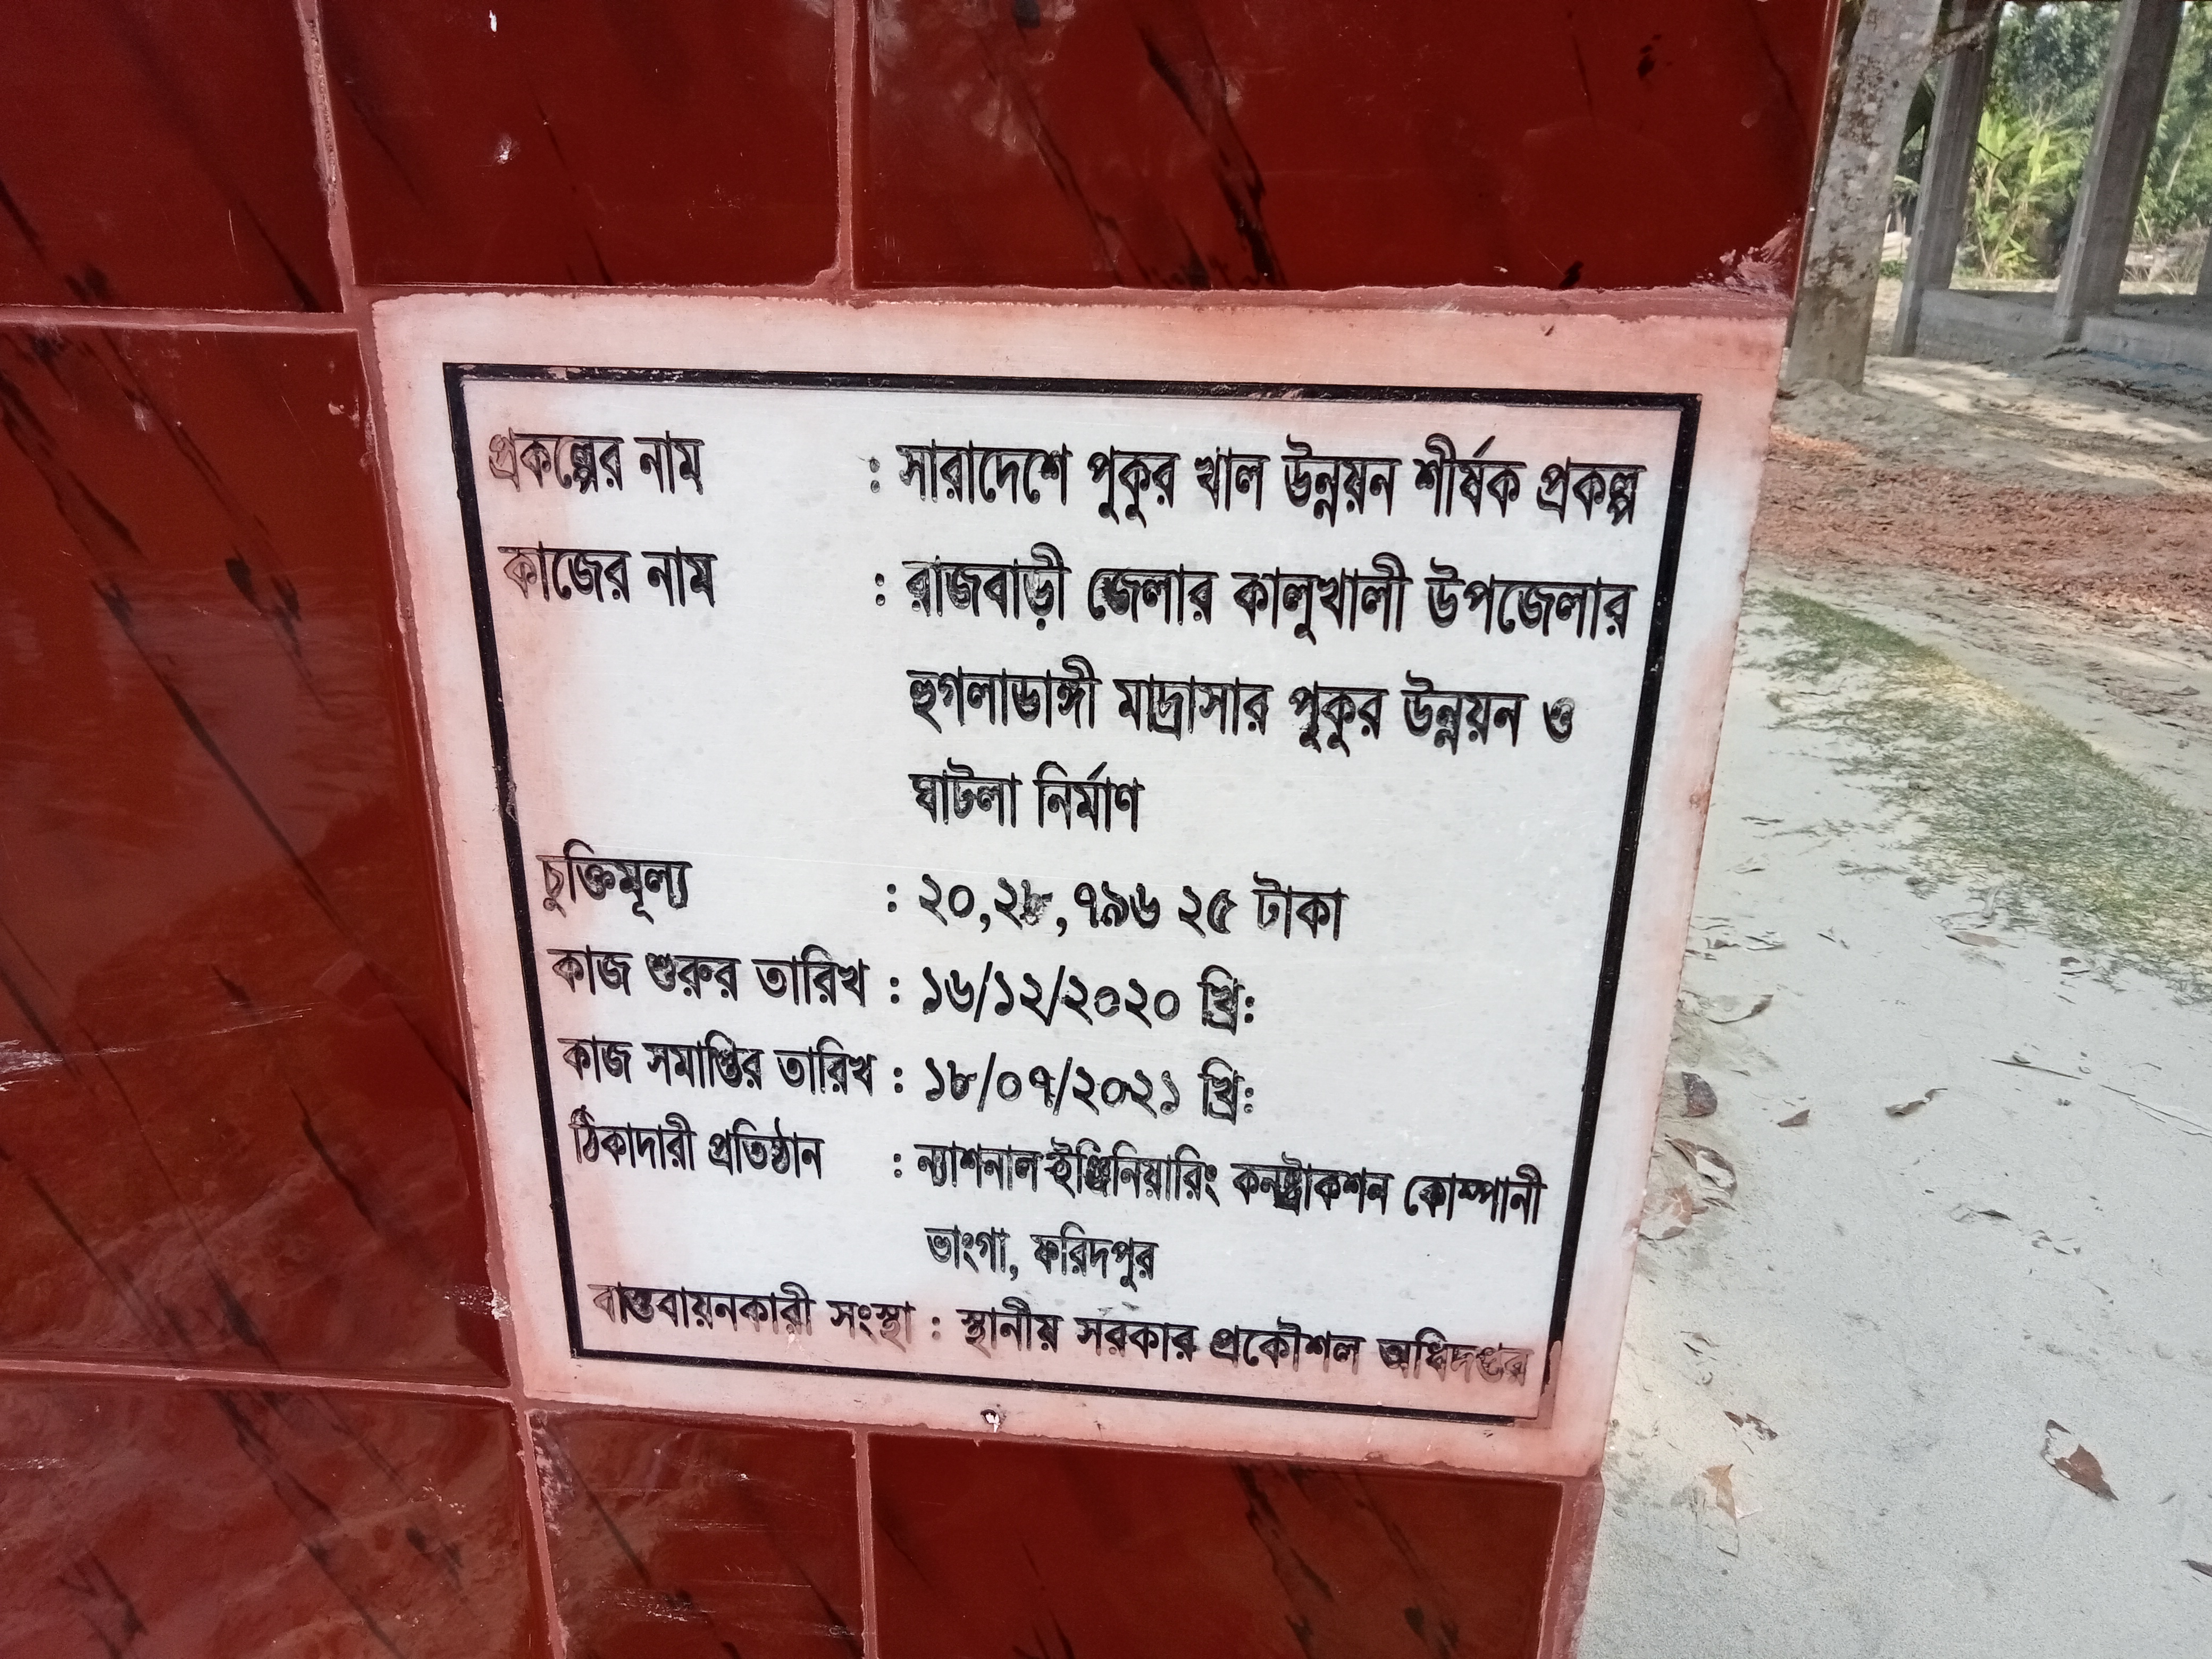 প্রকল্পের নাম : সারাদেশে পুকুর খাল উন্নয়ন শীর্ষক প্রকল্প
কাজের নাম : রাজবাড়ী জেলার কালুখালী উপজেলার
হুগলাডাঙ্গী মাদ্রাসার পুকুর উন্নয়ন ও
ঘাটলা নির্মাণ
চুক্তিমূল্য : ২০,২৮,৭৯৬ ২৫ টাকা
কাজ শুরুর তারিখ : ১৬/১২/২০২০ খ্রি:
কাজ সমাপ্তির তারিখ : ১৮/০৭/২০২১ খ্রি:
ঠিকাদারী প্রতিষ্ঠান : ন্যাশনাল ইঞ্জিনিয়ারিং কনস্ট্রাকশন কোম্পানী
ভাংগা, ফরিদপুর
বাস্তবায়নকারী সংস্থা : স্থানীয় সরকার প্রকৌশল অধিদপ্তর